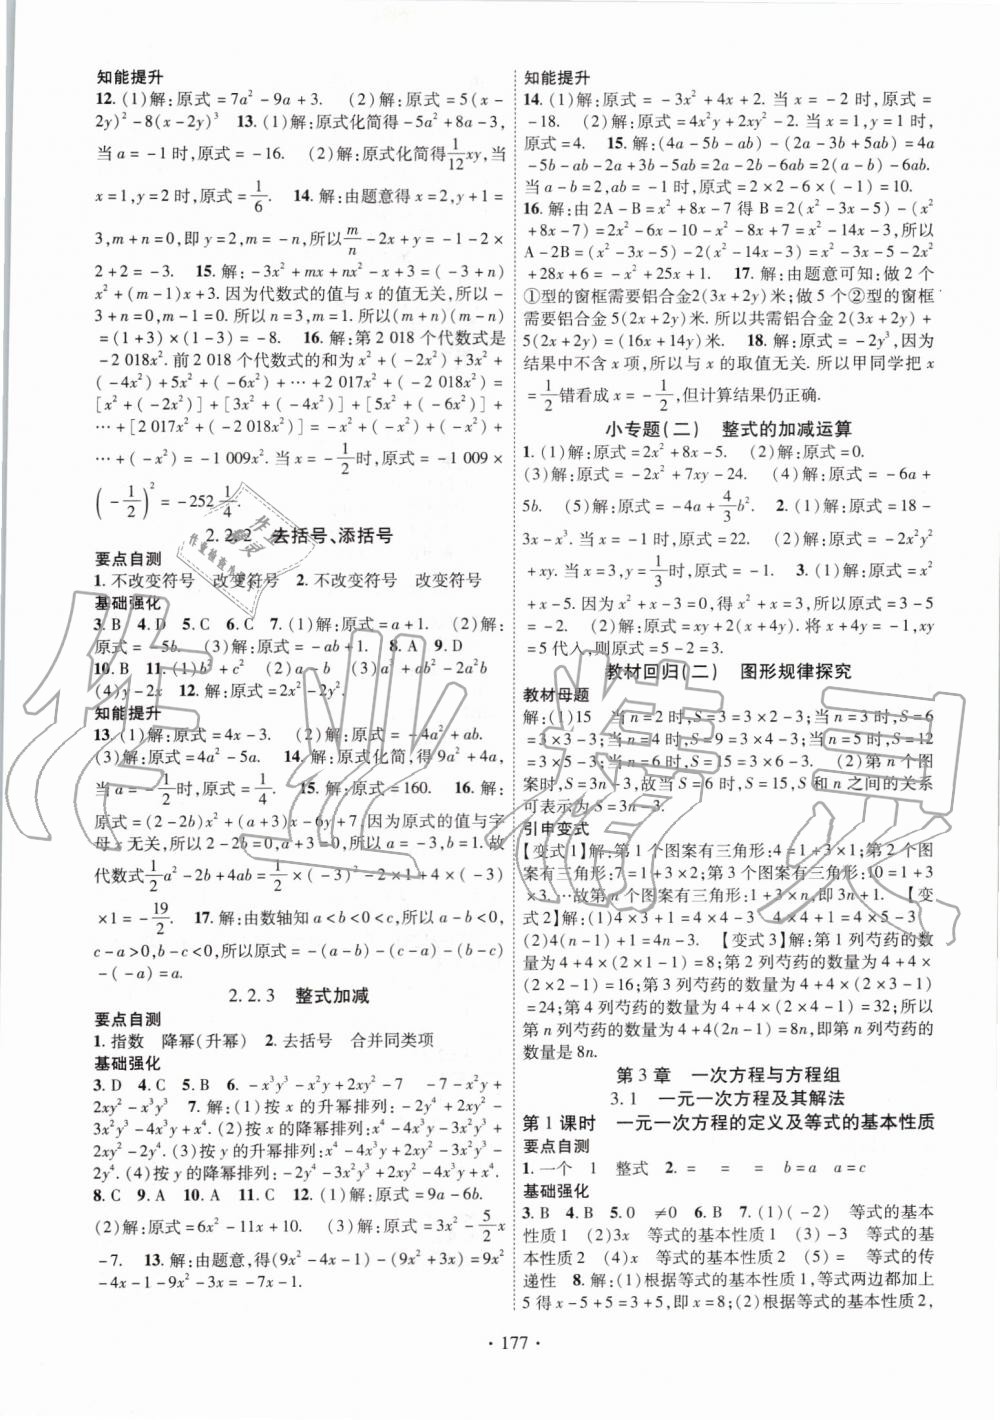 知能提升
12. (1)解:原式=7a²-9a+3. (2)解:原式=5(x-
2y)²-8(x-2y)³ 13. (1)解:原式化简得-5a²+8a-3,
当a=-1时,原式=-16. (2)解:原式化简得1/12xy,当
x=1,y=2时,原式=1/6. 14. 解:由题意得x=2,y+1=
3,m+n=0,即y=2,m=-n,所以m/n-2x+y=-1-2×
2+2=-3. 15. 解:-3x²+mx+nx²-x+3=(-3+n)
x²+(m-1)x+3. 因为代数式的值与x的值无关,所以-
3+n=0,m-1=0. 所以n=3,m=1. 所以(m+n)(m-n)
=(1+3)×(1-3)=-8. 16. 解:第2 018个代数式是
-2 018x². 前2 018个代数式的和为x²+(-2x²)+3x²+
(-4x²)+5x²+(-6x²)+…+2 017x²+(-2 018x²)=
[x²+(-2x²)]+[3x²+(-4x²)]+[5x²+(-6x²)]+
…+[2 017x²+(-2 018x²)]=-x²+(-x²)+(-x²)+
…+(-x²)=-1 009x². 当x=-1/2时,原式=-1 009×
(-1/2)²=-252 1/4.
2.2.2 去括号、添括号
要点自测
1. 不改变符号 改变符号 2. 不改变符号 改变符号
基础强化
3. B 4. D 5. C 6. C 7. (1)解:原式=a+1. (2)解:
原式=-5b. (3)解:原式=-ab+1. 8. A 9. D
10. B 11. (1)b²+c² (2)a-b (3)a²+ab²-2a²b
(4)y-2x 12. 解:原式=2x²-2y².
知能提升
13. (1)解:原式=4x-3. (2)解:原式=-4a²+ab.
(3)解:原式=4a²-5a. 14. 解:原式化简,得9a²+4a,
当a=-1/2时,原式=1/4. 15. 解:原式=160. 16. 解:
原式=(2-2b)x²+(a+3)x-6y+7,因为原式的值与字
母x无关,所以2-2b=0,a+3=0,所以a=-3,b=1. 故
代数式1/2a²-2b+4ab=1/2×(-3)²-2×1+4×(-3)
×1=-19/2. 17. 解:由数轴知a<b<0<c,所以a-b<0,
c-a>0,b-c<0,所以原式=-(a-b)-(c-a)-(b-c)
-(-a)=a.
2.2.3 整式加减
要点自测
1. 指数 降幂(升幂) 2. 去括号 合并同类项
基础强化
3. D 4. C 5. B 6. -x³y³-x²y+2xy²-7 -7-x²y+
2xy²-x³y³ 7. (1)按x的升幂排列:-2y⁴+2xy²-
3x²y³-4x³y+x⁴. (2)按x的降幂排列:x⁴-4x³y-3x²y³+
2xy²-2y⁴. (3)按y的升幂排列:x⁴-4x³y+2xy²-3x²y³-
2y⁴. (4)按y的降幂排列:-2y⁴-3x²y³+2xy²-4x³y+x⁴.
8. C 9. A 10. A 11. C 12. (1)解:原式=9a-6b.
(2)解:原式=6x²-11x+10. (3)解:原式=3x²-5/2x
-7. 13. 解:由题意,得(9x²-4x-1)-(9x²+3x)=9x²
-4x-1-9x²-3x=-7x-1.
知能提升
14. (1)解:原式=-3x²+4x+2. 当x=-2时,原式=
-18. (2)解:原式=4x²y+2xy²-2. 当x=1,y=1时,
原式=4. 15. 解:(4a-5b-ab)-(2a-3b+5ab)=4a
-5b-ab-2a+3b-5ab=2a-2b-6ab=2(a-b)-6ab.
当a-b=2,ab=-1时,原式=2×2-6×(-1)=10.
16. 解:由2A-B=x²+8x-7得B=2(x²-3x-5)-(x²
+8x-7)=2x²-6x-10-x²-8x+7=x²-14x-3,所以
A-2B=(x²-3x-5)-2(x²-14x-3)=x²-3x-5-2x²
+28x+6=-x²+25x+1. 17. 解:由题意可知:做2个
①型的窗框需要铝合金2(3x+2y)米;做5个②型的窗框
需要铝合金5(2x+2y)米. 所以共需铝合金2(3x+2y)+
5(2x+2y)=(16x+14y)米. 18. 解:原式=-2y³,因为
结果中不含x项,所以与x的取值无关. 所以甲同学把x
=1/2错看成x=-1/2,但计算结果仍正确.
小专题(二) 整式的加减运算
1. (1)解:原式=2x²+8x-5. (2)解:原式=0.
(3)解:原式=-2x²+7xy-24. (4)解:原式=-6a+
5b. (5)解:原式=-4a+4/3b². 2. (1)解:原式=18-
3x-x². 当x=-1时,原式=22. (2)解:原式=-2x²y²
+xy. 当x=1/3时,原式=-1. 3. (1)解:原式=x²
+x-5. 因为x²+x+2=0,所以x²+x=-2,所以原式=-5
-2. (2)解:原式=xy+2(x+4y). 将x+4y=-1,xy
=5代入,则原式=5-2=3.
教材回归(二) 图形规律探究
教材母题
解:(1)15 当n=2时,S=3=3×2-3;当n=3时,S=6
=3×3-3;当n=4时,S=9=3×4-3;当n=5时,S=12
=3×5-3;当n=6时,S=15=3×6-3. (2)第n个图
案时,S=3n-3,故当S=6时,S=15,S和n之间的关系
可表示为S=3n-3.
引申变式
【变式1】解:第1个图案有三角形:4=1+3×1;第2个图
案有三角形:7=1+3×2;第3个图案有三角形:10=1+3
×3…故第n个图案有三角形:1+3×n,即3n+1. 【变
式2】解:(1)4×3+1=4×4-3 4×4+1=4×5-3
(2)4(n-1)+1=4n-3. 【变式3】解:第1列芍药的数
量为4+4×(2×1-1)=8;第2列芍药的数量为4+4×
(2×2-1)=16;第3列芍药的数量为4+4×(2×3-1)
=24;第4列芍药的数量为4+4×(2×4-1)=32;所以
第n列芍药的数量为4+4(2n-1)=8n,即第n列芍药的
数量是8n.
第3章 一次方程与方程组
3.1 一元一次方程及其解法
第1课时 一元一次方程的定义及等式的基本性质
要点自测
1. 一个 1 整式 2. = = = b=a a=c
基础强化
3. B 4. B 5. 0 ≠0 6. B 7. (1)(-2) 等式的基本
性质1 (2)3x 等式的基本性质1 (3)-3 等式的基
本性质2 (4)x 等式的基本性质2 (5)= 等式的传
递性 8. 解:(1)根据等式的基本性质1,等式两边都加上
5得x-5+5=3+5,即x=8;(2)根据等式的基本性质2,
·177·
作业精灵